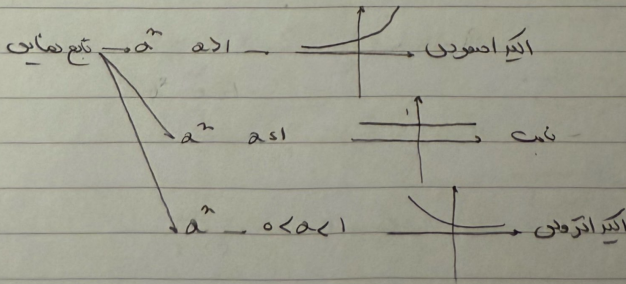 تابع نمایی → aˣ a>1 — اکیداً صعودی
aˣ a=1 ۱ ثابت
aˣ — 0<a<1 اکیداً نزولی